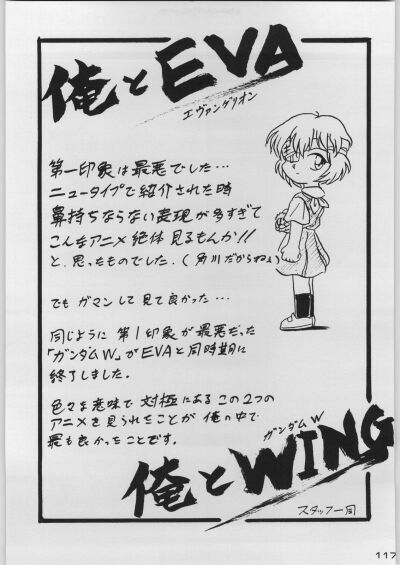 俺とEVA
エヴァンゲリオン
第一印象は最悪でした…
ニュータイプで紹介された時
鼻持ちならない表現が多すぎて
こんなアニメ絶体見るもんか!!
と、思ったものでした。(角川だからねぇ)
でもガマンして見て良かった…
同じように第1印象が最悪だった
「ガンダムW」がEVAと同時期に
終了しました。
色々な意味で対極にあるこの2つの
アニメを見られたことが俺の中で
最も良かったことです。
ガンダムW
俺とWING
スタッフ一同
117